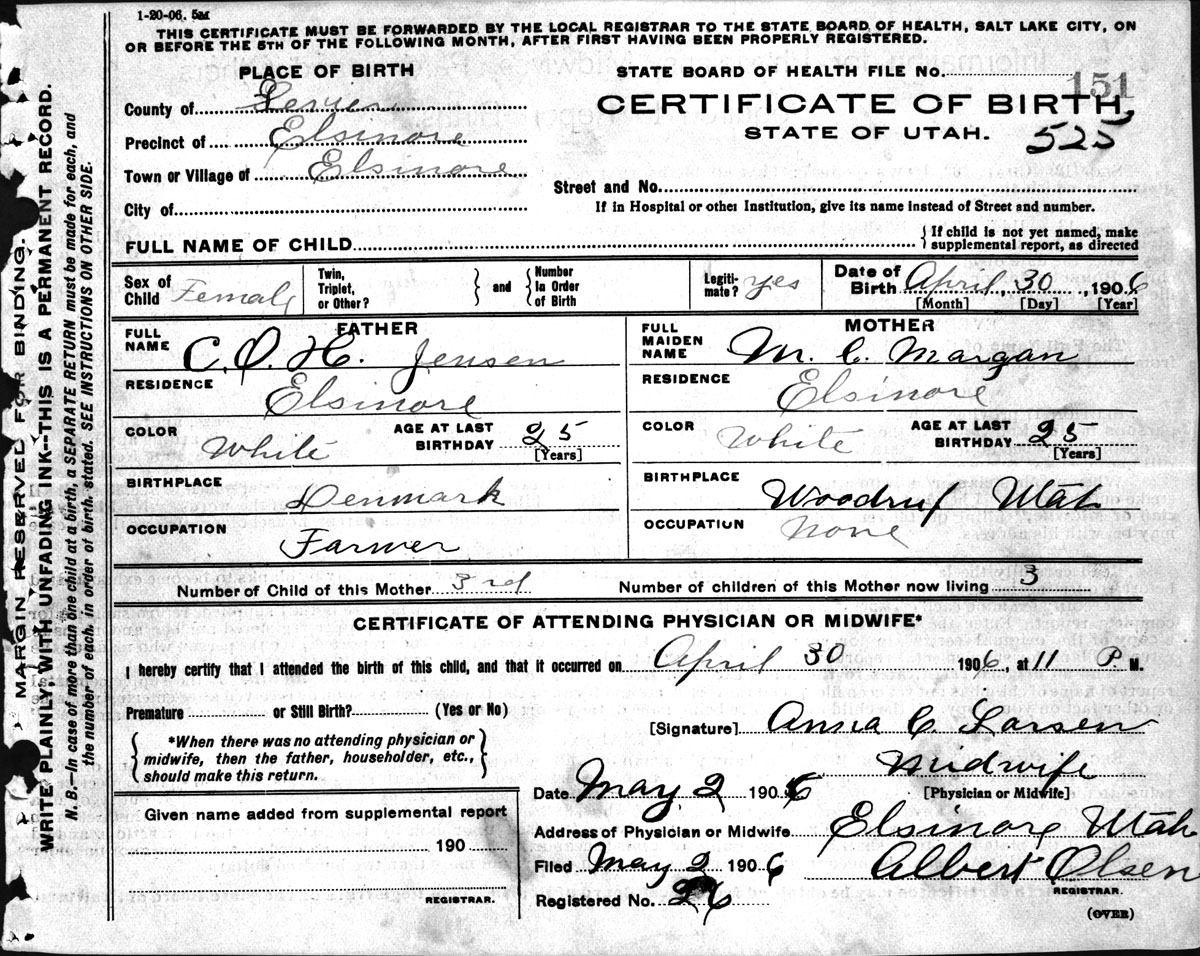 1-20-06. 5M
THIS CERTIFICATE MUST BE FORWARDED BY THE LOCAL REGISTRAR TO THE STATE BOARD OF HEALTH, SALT LAKE CITY, ON
OR BEFORE THE 5TH OF THE FOLLOWING MONTH, AFTER FIRST HAVING BEEN PROPERLY REGISTERED.
MARGIN RESERVED FOR BINDING.
WRITE PLAINLY, WITH UNFADING INK--THIS IS A PERMANENT RECORD.
N. B.—In case of more than one child at a birth, a SEPARATE RETURN must be made for each, and
the number of each, in order of birth, stated. SEE INSTRUCTIONS ON OTHER SIDE.
PLACE OF BIRTH
County of Sevier
Precinct of Elsinore
Town or Village of Elsinore
City of
STATE BOARD OF HEALTH FILE NO. 151
CERTIFICATE OF BIRTH,
STATE OF UTAH. 525
Street and No.
If in Hospital or other Institution, give its name instead of Street and number.
FULL NAME OF CHILD
{ If child is not yet named, make
supplemental report, as directed
Sex of Child Female
Twin, Triplet, or Other? } and { Number In Order of Birth
Legitimate? yes
Date of Birth April 30, 1906
[Month] [Day] [Year]
FATHER
FULL NAME C. O. H. Jensen
RESIDENCE Elsinore
COLOR White
AGE AT LAST BIRTHDAY 25
[Years]
BIRTHPLACE Denmark
OCCUPATION Farmer
MOTHER
FULL MAIDEN NAME M. C. Margan
RESIDENCE Elsinore
COLOR White
AGE AT LAST BIRTHDAY 25
[Years]
BIRTHPLACE Woodruf Utah
OCCUPATION None
Number of Child of this Mother 3rd Number of children of this Mother now living 3
CERTIFICATE OF ATTENDING PHYSICIAN OR MIDWIFE*
I hereby certify that I attended the birth of this child, and that it occurred on April 30 1906, at 11 P. M.
Premature or Still Birth? (Yes or No)
{ *When there was no attending physician or
midwife, then the father, householder, etc.,
should make this return. }
[Signature] Anna C. Larsen
Midwife
[Physician or Midwife]
Date May 2 1906
Address of Physician or Midwife Elsinore Utah
Filed May 2 1906 Albert Olsen
REGISTRAR.
Registered No. 26
(OVER)
Given name added from supplemental report
190
REGISTRAR.